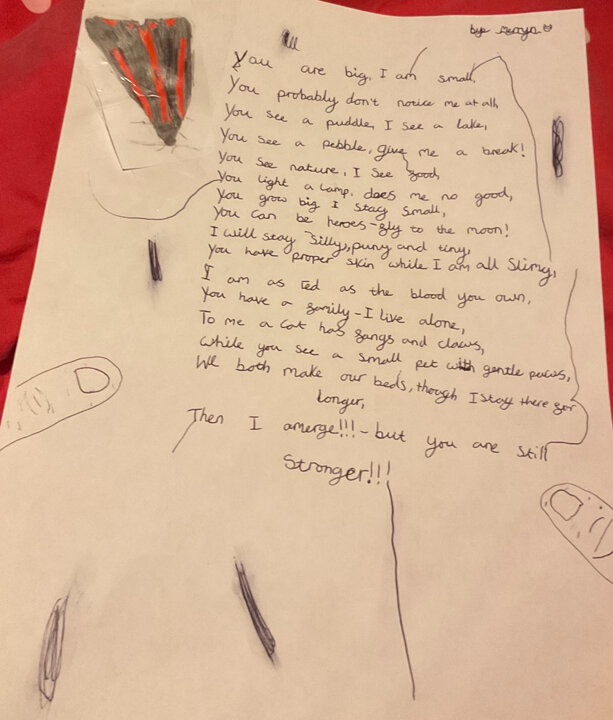 by
You are big, I am small,
You probably don't notice me at all,
You see a puddle, I see a lake,
You see a pebble, give me a break!
You see nature, I see food,
You light a lamp, does me no good,
You grow big I stay small,
You can be heroes - fly to the moon!
I will stay silly, puny and tiny,
You have proper skin while I am all slimy,
I am as red as the blood you own,
You have a family - I live alone,
To me a cat has fangs and claws,
While you see a small pet with gentle paws,
We both make our beds, though I stay there for
longer,
Then I amerge!!! - but you are still
Stronger!!!